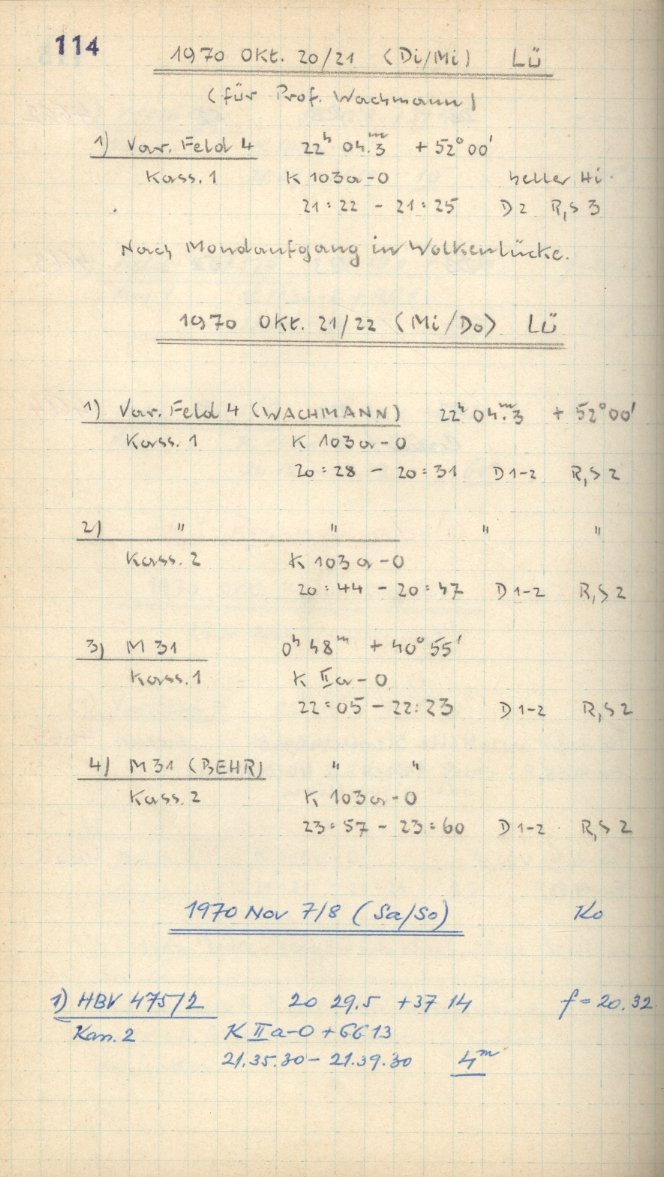 114
1970 OKt. 20/21 (Di/Mi) Lü
(für Prof. Wachmann)
1) Var. Feld 4 22ʰ 04.ᵐ3 +52°00'
Kass. 1 K 103a-O heller Hi.
21:22 - 21:25 D2 R,S 3
Nach Mondaufgang in Wolkenlücke.
1970 OKt. 21/22 (Mi/Do) Lü
1) Var. Feld 4 (WACHMANN) 22ʰ 04.ᵐ3 + 52°00'
Kass. 1 K 103a-O
20:28 - 20:31 D1-2 R,S 2
2) " " " "
Kass. 2 K 103a-O
20:44 - 20:47 D1-2 R,S 2
3) M 31 0ʰ 48ᵐ + 40° 55'
Kass. 1 K IIa-O
22:05 - 22:23 D1-2 R,S 2
4) M31 (BEHR) " "
Kass. 2 K 103a-O
23:57 - 23:60 D1-2 R,S 2
1970 Nov 7/8 (Sa/So) Ko
1) HBV 475/2 20 29.5 +37 14 f=20.32
Kass. 2 K IIa-O + GG13
21.35.30 - 21.39.30 4ᵐ